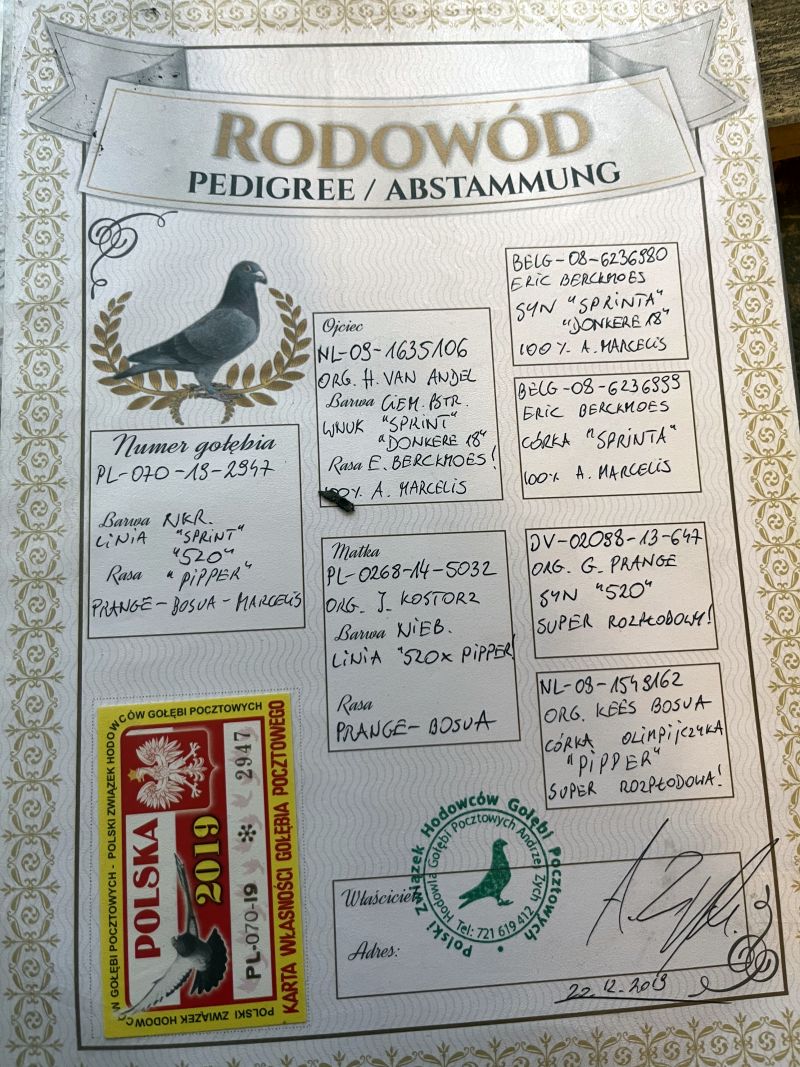 RODOWÓD
PEDIGREE / ABSTAMMUNG
Numer gołębia
PL-070-19-2947
Barwa NKR.
LINIA "SPRINT"
"520"
Rasa "PIPPER"
PRANGE-BOSUA-MARCELIS
Ojciec
NL-09-1635106
ORG. H. VAN ANDEL
Barwa CIEM. PSTR.
WNUK "SPRINT"
"DONKERE 18"
Rasa E. BERCKMOES!
100% A. MARCELIS
Matka
PL-0268-14-5032
ORG. J. KOSTORZ
Barwa NIEB.
LINIA "520 x PIPPER!
Rasa
PRANGE-BOSUA
BELG-08-6236980
ERIC BERCKMOES
SYN "SPRINTA"
"DONKERE 18"
100% A. MARCELIS
BELG-08-6236999
ERIC BERCKMOES
CÓRKA "SPRINTA"
100% A. MARCELIS
DV-02088-13-647
ORG. G. PRANGE
SYN "520"
SUPER ROZPŁODOWY!
NL-09-1548162
ORG. KEES BOSUA
CÓRKA OLIMPIJCZYKA
"PIPPER"
SUPER ROZPŁODOWA!
POLSKI ZWIĄZEK HODOWCÓW GOŁĘBI POCZTOWYCH
POLSKA
2019
PL-070-19 * 2947
KARTA WŁASNOŚCI GOŁĘBIA POCZTOWEGO
Polski Związek Hodowców Gołębi Pocztowych
Hodowla Gołębi Pocztowych Andrzej Zych
Tel: 721 619 412
Właściciel
Adres:
22.12.2019